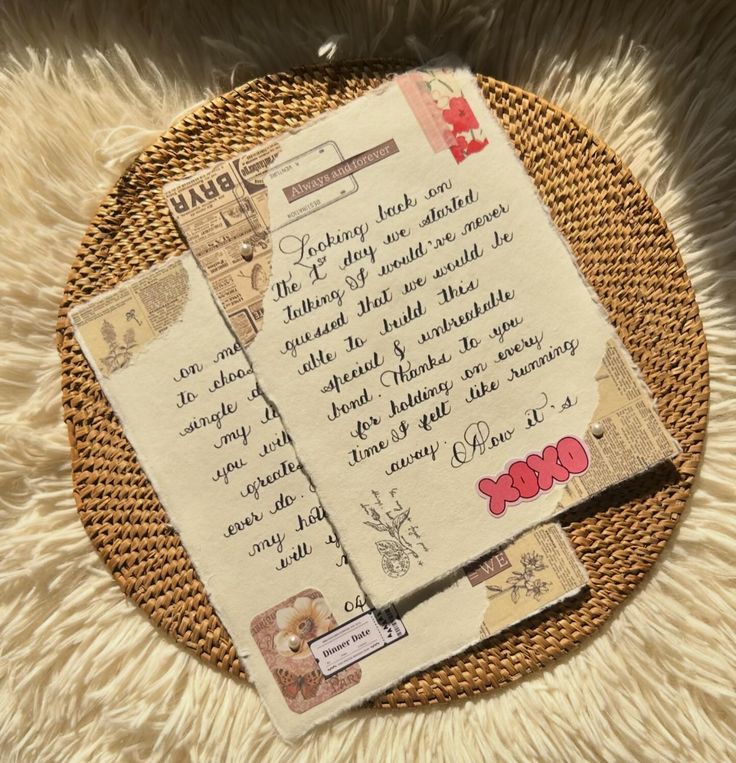 BRYR
A VENTURE
Always and forever
DESTINATION
Looking back on
the 1st day we started
talking I would've never
guessed that we would be
able to build this
special & unbreakable
bond. Thanks to you
for holding on every
time I felt like running
away. Now it's
XOXO
on me
to choos
single d
my l
you will
greates
ever do.
my hol
will y
04
WE
Dinner Date